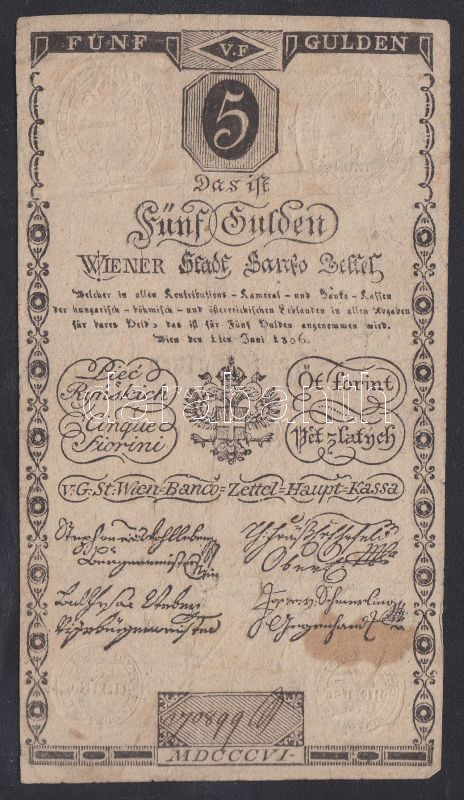 FÜNF V.F GULDEN
5
Das ist
Fünf Gulden
WIENER Stadt Banko Zettel
Welcher in allen Kontributions-Kameral-und Banko-Kassen
der hungarisch-böhmisch-und österreichischen Erblanden in allen Abgaben
für bares Geld, das ist für Fünf Gulden angenommen wird.
Wien den 1ten Juni 1806.
Pięć
Ryńskich
Öt forint
darabanth
Cinque
Fiorini
Pět zlatých
V.G.St.Wien-Banco-Zettel-Haupt-Kassa
Stephan
Burgermeister
Ober
MDCCCVI